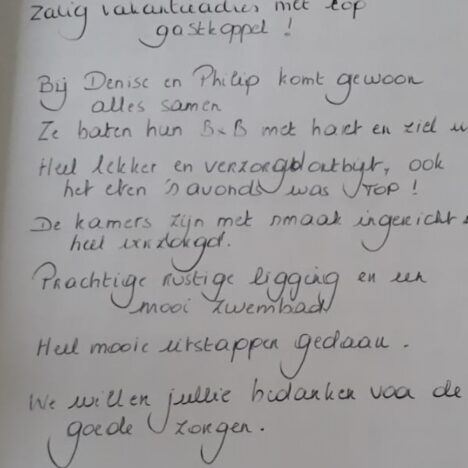 Zalig vakantieadres met top
gastkoppel !
Bij Denise en Philip komt gewoon
alles samen
Ze baten hun B&B met hart en ziel u
Heel lekker en verzorgd ontbijt, ook
het eten 's avonds was TOP !
De kamers zijn met smaak ingericht
heel verzorgd.
Prachtige rustige ligging en een
mooi zwembad
Heel mooie uitstappen gedaan.
We willen jullie bedanken voor de
goede zorgen.